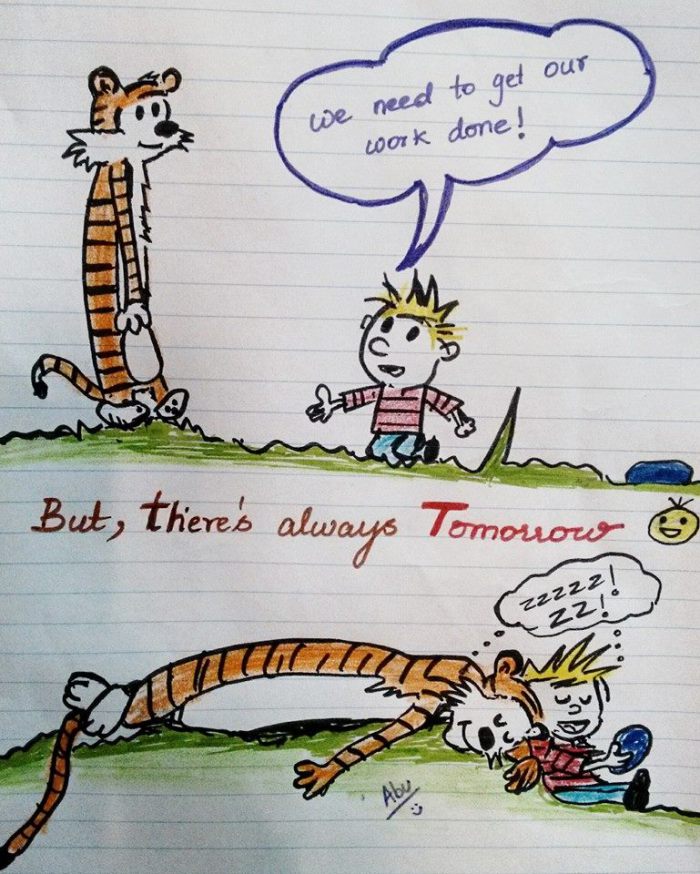 we need to get our
work done!
But, there's always Tomorrow
zzzzz!
zz!
Abu